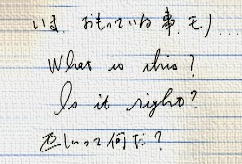 いま おもっている事、モノ....
What is this?
Is it right?
正しいって何だ?